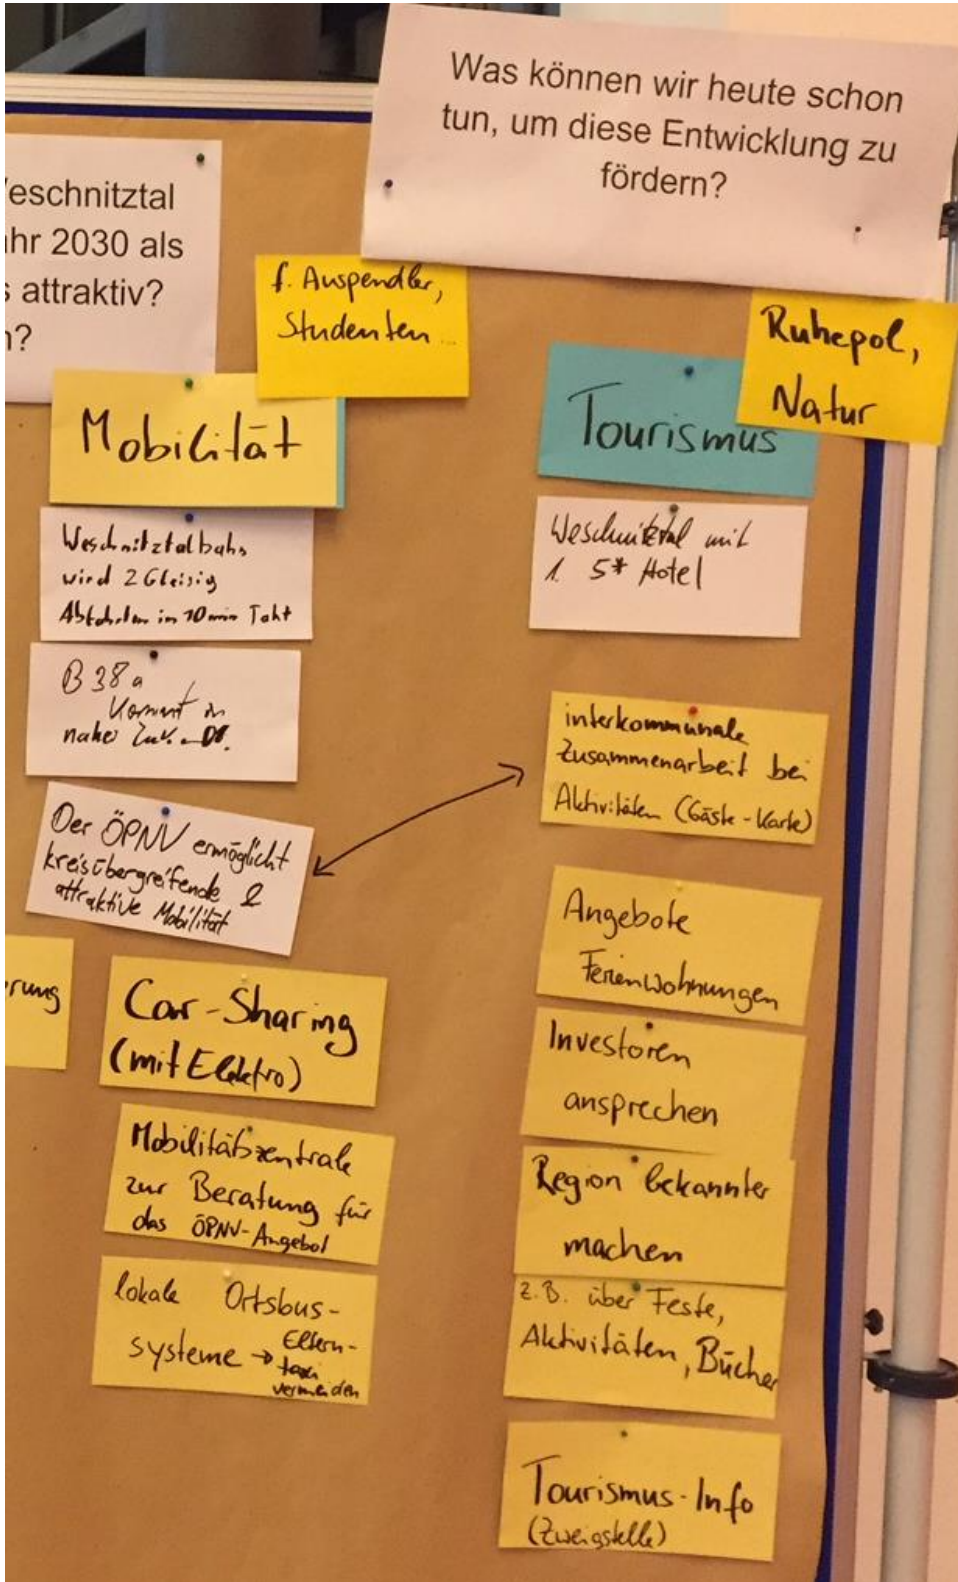 Was können wir heute schon
tun, um diese Entwicklung zu
fördern?
eschnitztal
hr 2030 als
attraktiv?
?
f. Auspendler,
Studenten...
Mobilität
Weschnitztalbahn
wird 2 Gleisig
Abfahrten im 10 min Takt
B 38a
kommt in
naher
Der ÖPNV ermöglicht
kreisübergreifende &
attraktive Mobilität
rung
Car-Sharing
(mit Elektro)
Mobilitätszentrale
zur Beratung für
das ÖPNV-Angebot
lokale Ortsbus-
systeme → Eltern-
taxi
vermeiden
Ruhepol,
Natur
Tourismus
Weschnitztal mit
1. 5* Hotel
interkommunale
Zusammenarbeit bei
Aktivitäten (Gäste-Karte)
Angebote
Ferienwohnungen
Investoren
ansprechen
Region bekannter
machen
z.B. über Feste,
Aktivitäten, Bücher
Tourismus-Info
(Zweigstelle)